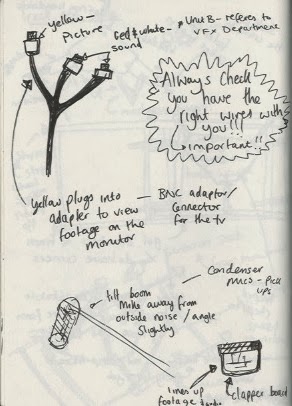 yellow -
Picture
Red & white -
sound
Unit B - referes to
VFX Department
Always Check
you have the
right wires with
you!!!
important!!
yellow plugs into
adapter to view
footage on the
monitor
BNC adaptor/
Connector
for the tv
Condenser
mics - Pick
ups
tilt boom
mike away from
outside noise / angle
slightly
lines up
footage
clapper board